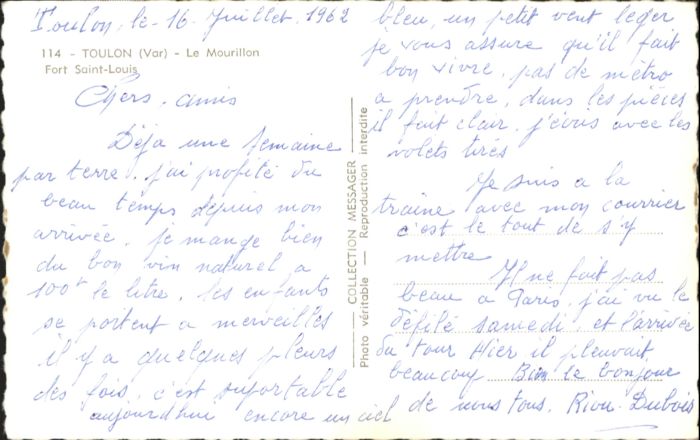 Toulon, le 16 Juillet. 1962
114 - TOULON (Var) - Le Mourillon
Fort Saint-Louis
Chers. amis
Déja une semaine
par terre. j'ai profité du
beau temps depuis mon
arrivée. je mange bien
du bon vin naturel a
100f le litre. les enfants
se portent a merveilles
il y a quelques pleurs
des fois. c'est suportable
aujourd'hui encore un ciel
COLLECTION MESSAGER
Photo véritable - Reproduction interdite
bleu, un petit vent leger
je vous assure qu'il fait
bon vivre. pas de mètro
a prendre. dans les pièces
il fait clair. j'écris avec les
volets tirés
Je suis a la
traine avec mon courrier
c'est le tout de s'y
mettre
Il ne fait pas
beau a Paris. j'ai vu le
défilé samedi. et l'arrivée
du tour Hier il pleuvait
beaucoup Bien le bonjour
de nous tous. Riou-Dubois